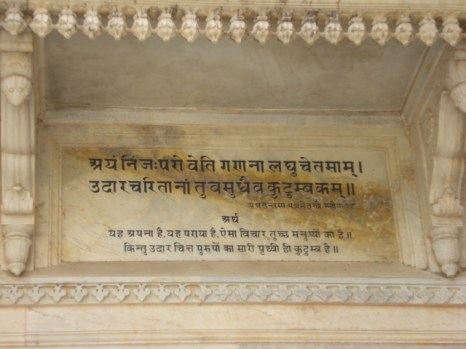 अयं निजः परो वेति गणना लघु चेतसाम्।
उदारचरितानां तु वसुधैव कुटुम्बकम्॥
अर्थ
यह अपना है, यह पराया है, ऐसा विचार तुच्छ मनुष्यों का है॥
किन्तु उदार चित्त पुरुषों का सारी पृथ्वी ही कुटुम्ब है॥